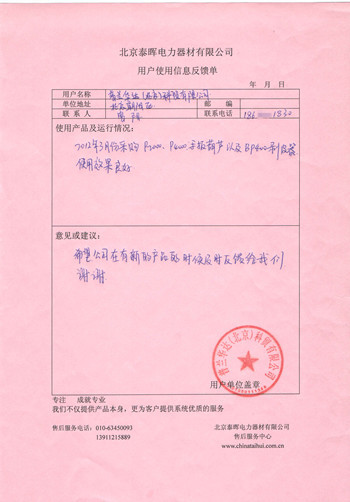 北京泰晖电力器材有限公司
用户使用信息反馈单
年 月 日
用户名称 普兰华达(北京)科技有限公司
单位地址 北京朝阳区 邮 编
联 系 人 联系电话 186 1830
使用产品及运行情况:
2012年3月份采购 P2000、P400 手扳葫芦以及BP400剥皮器
使用效果良好
意见或建议:
希望公司在有新的产品的时候及时反馈给我们
谢谢
普兰华达(北京)科技有限公司
用户单位盖章
专注 成就专业
我们不仅提供产品本身,更为客户提供系统优质的服务
售后服务电话:010-63450093
13911215889
北京泰晖电力器材有限公司
售后服务中心
www.chinataihui.com.cn